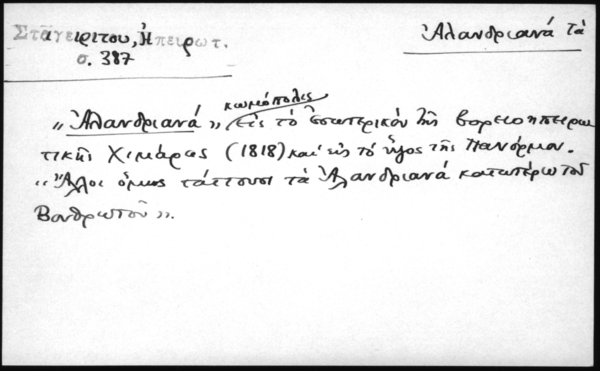 Σταγειρίτου, Ηπειρωτ.
σ. 387
Ἀλανδριανά τὰ
κωμόπολις
„Ἀλανδριανά" Εἰς τὸ ἐσωτερικὸν τῆς βορειοηπειρω
τικῆς Χιμάρας (1818) καὶ εἰς τὸ ὕψος τῆς Πανόρμου.
„Ἄλλοι ὅμως τάττουσι τὰ Ἀλανδριανά κατωτέρω τοῦ
Βουθρωτοῦ".